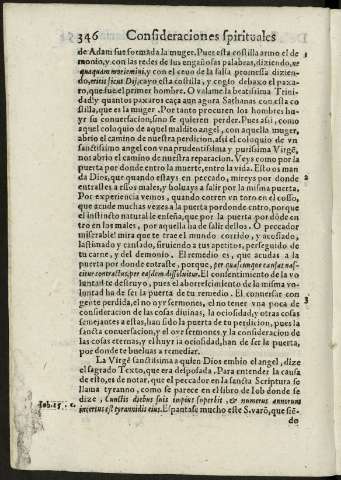 346 Consideraciones spirituales
de Adam fue formada la muger. Pues esta costilla armo el de
monio, y con las redes de sus engañosas palabras, diziendo, ne
quaquam moriemini, y con el ceuo de la falsa promessa dizien-
do, eritis sicut Dij, cayo esta costilla, y cogio debaxo el paxa-
ro, que fue el primer hombre. O valame la beatissima Trini-
dad, y quantos paxaros caça aun agora Sathanas con esta co
stilla, que es la muger. Por tanto procuren los hombres hu-
yr su conuersacion, sino se quieren perder. Pues assi, como
aquel coloquio de aquel maldito angel, con aquella muger,
abrio el camino de nuestra perdicion, assi el coloquio de vn
sanctissimo angel con vna prudentissima y purissima Virgẽ,
nos abrio el camino de nuestra reparacion. Veys como por la
puerta por donde entro la muerte, entro la vida. Esto os man
da Dios, que quando estays en peccado, mireys por donde
entrastes a essos males, y boluays a salir por la misma puerta.
Por experiencia vemos, quando corren vn toro en el cosso,
que acude muchas vezes a la puerta por donde entro, porque
el instincto natural le enseña, que por la puerta por dõde en
tro en los males, por aquella ha de salir dellos. O peccador
miserable! mira que te trae el mundo corrido, y acossado,
lastimado y cansado, siruiendo a tus apetitos, perseguido de
tu carne, y del demonio. El remedio es, que acudas a la
puerta por donde entraste, porque, per quascunque causas nas-
citur contractus, per easdem dissoluitur. El consentimiento de la vo
luntad te destruyo, pues el aborrescimiento de la misma vo-
luntad ha de ser la puerta de tu remedio. El conuersar con
gente perdida, el no oyr sermones, el no tener vna poca de
consideracion de las cosas diuinas, la ociosidad, y otras cosas
semejantes a estas, han sido la puerta de tu perdicion, pues la
sancta conuersacion, y el oyr sermones y la consideracion de
las cosas eternas, y el huyr la ociosidad, han de ser la puerta,
por donde te bueluas a remediar.
La Virgẽ sanctissima a quien Dios embio el angel, dize
el sagrado Texto, que era desposada. Para entender la causa
de esto, es de notar, que el peccador en la sancta Scriptura se
llama tyranno, como se parece en el libro de Iob donde se
Iob. 15. c. dize, Cunctis diebus suis impius superbit, & numerus annorum
incertus est tyrannidis eius. Espantase mucho este S. varõ, que siẽ-
do